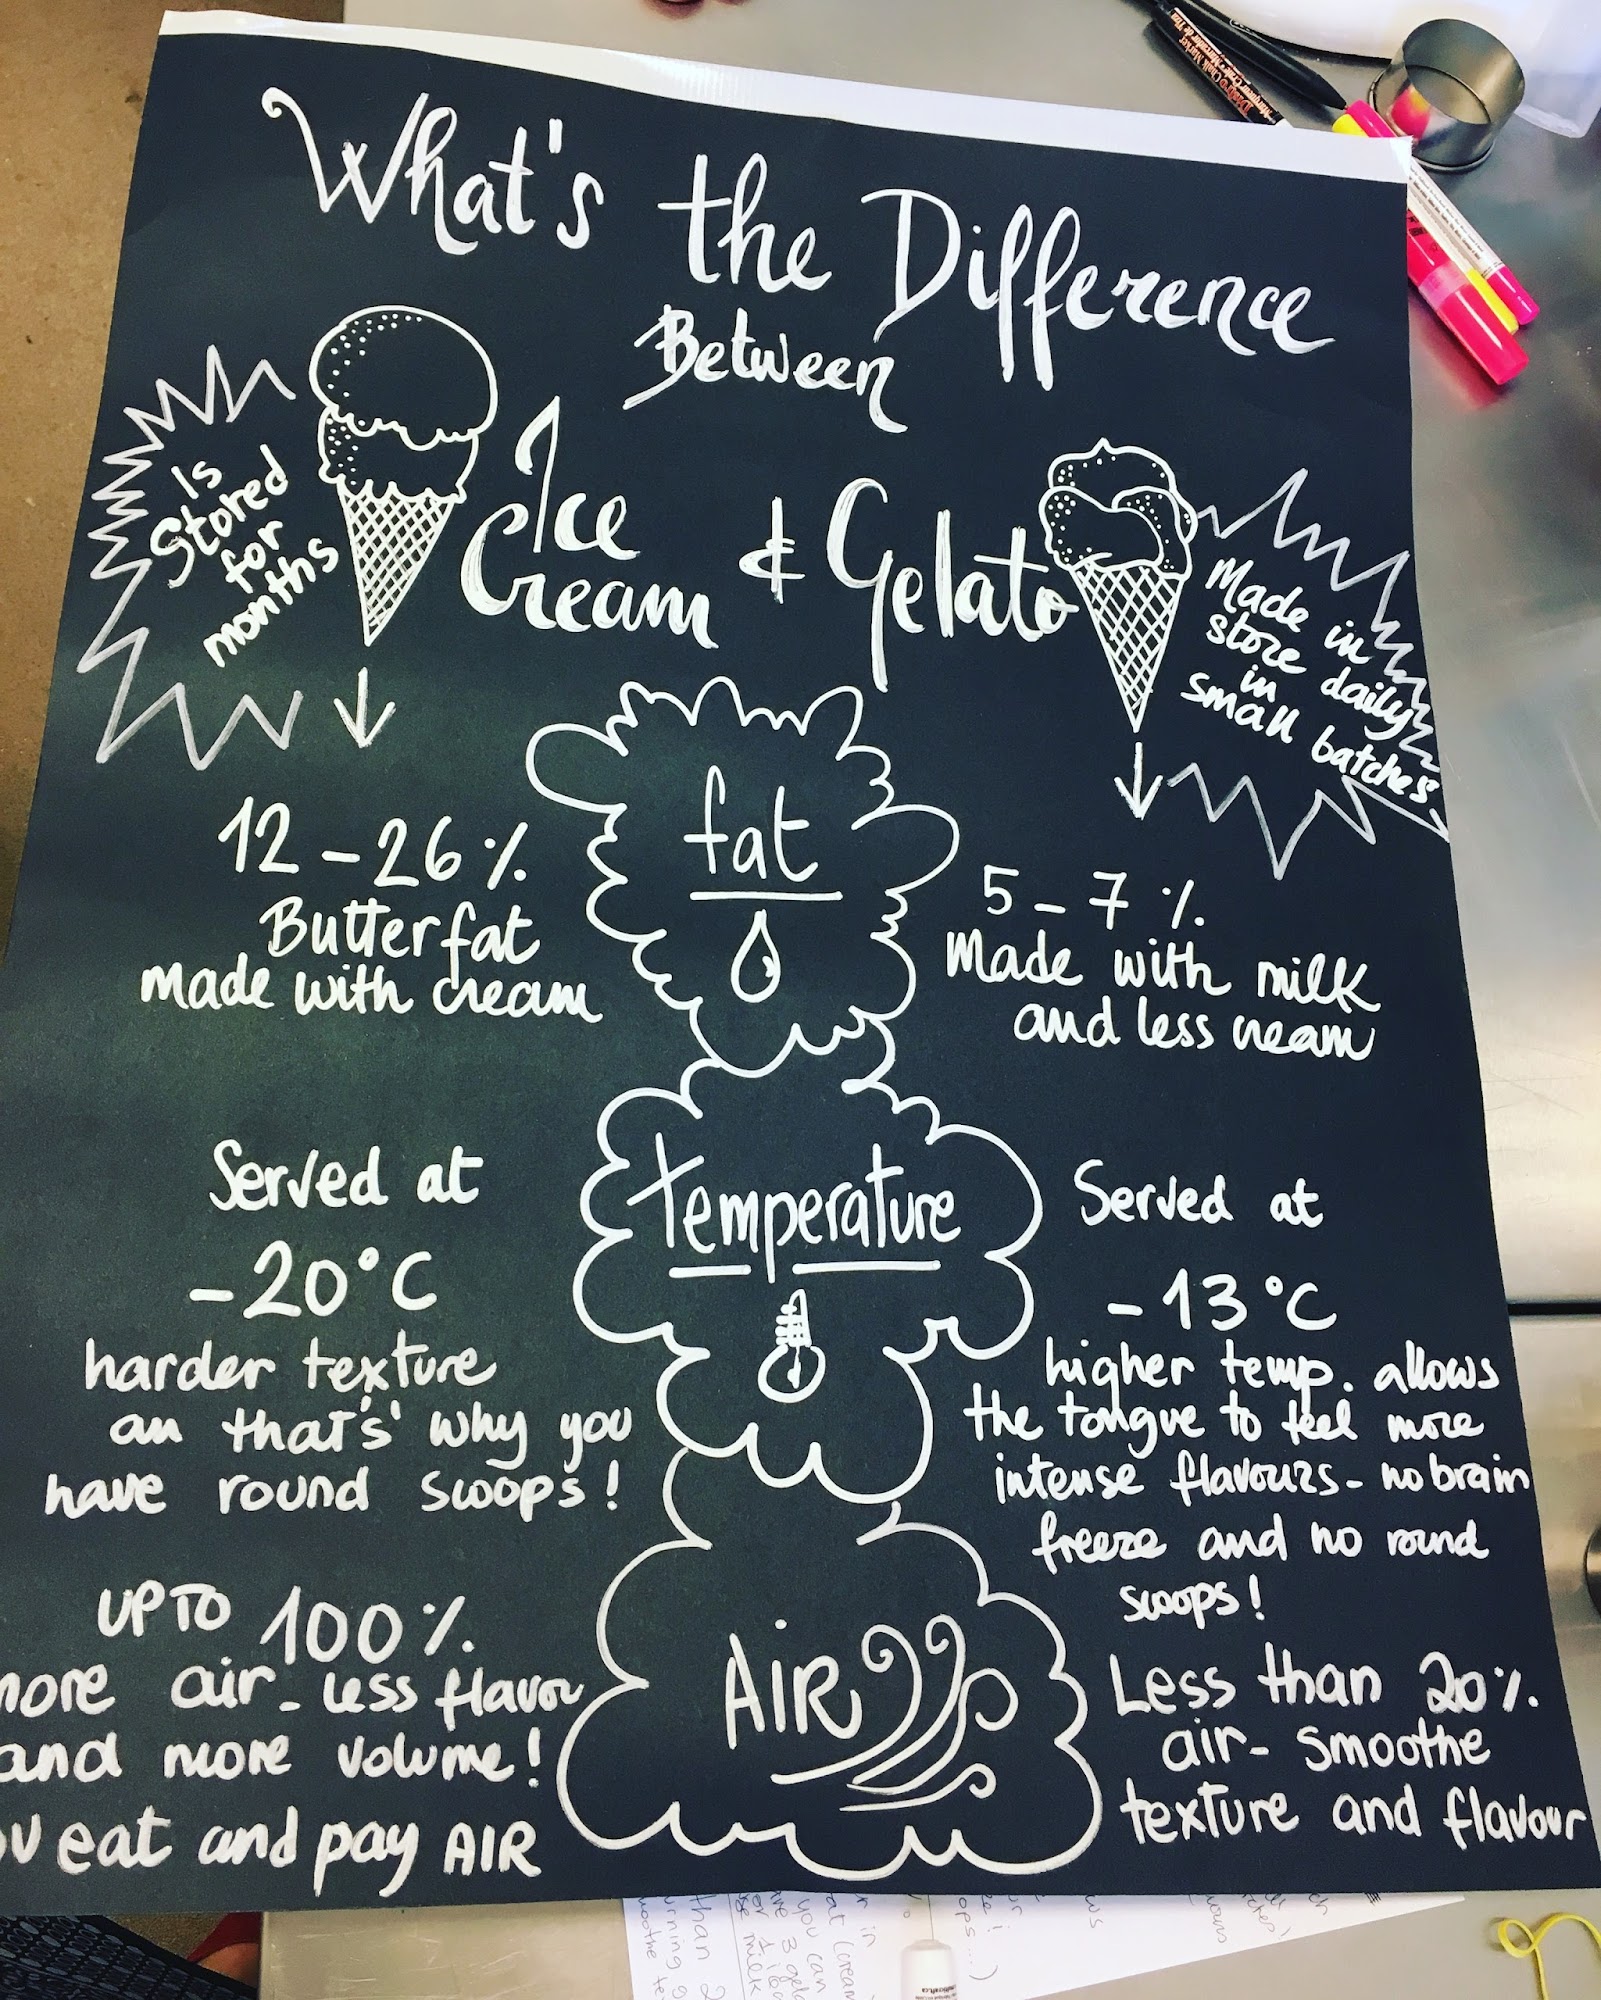 What's the Difference
Between
Ice
Cream & Gelato
Is
Stored
for
months
Made in
store daily
in
small batches
fat
12-26%
Butterfat
made with cream
5-7%
Made with milk
and less cream
Temperature
Served at
-20°C
harder texture
an that's' why you
have round scoops!
Served at
-13°C
higher temp. allows
the tongue to feel more
intense flavours - no brain
freeze and no round
scoops!
AIR
UP TO 100%
more air - less flavou
and more volume!
eat and pay AIR
Less than 20%
air - smoothe
texture and flavour